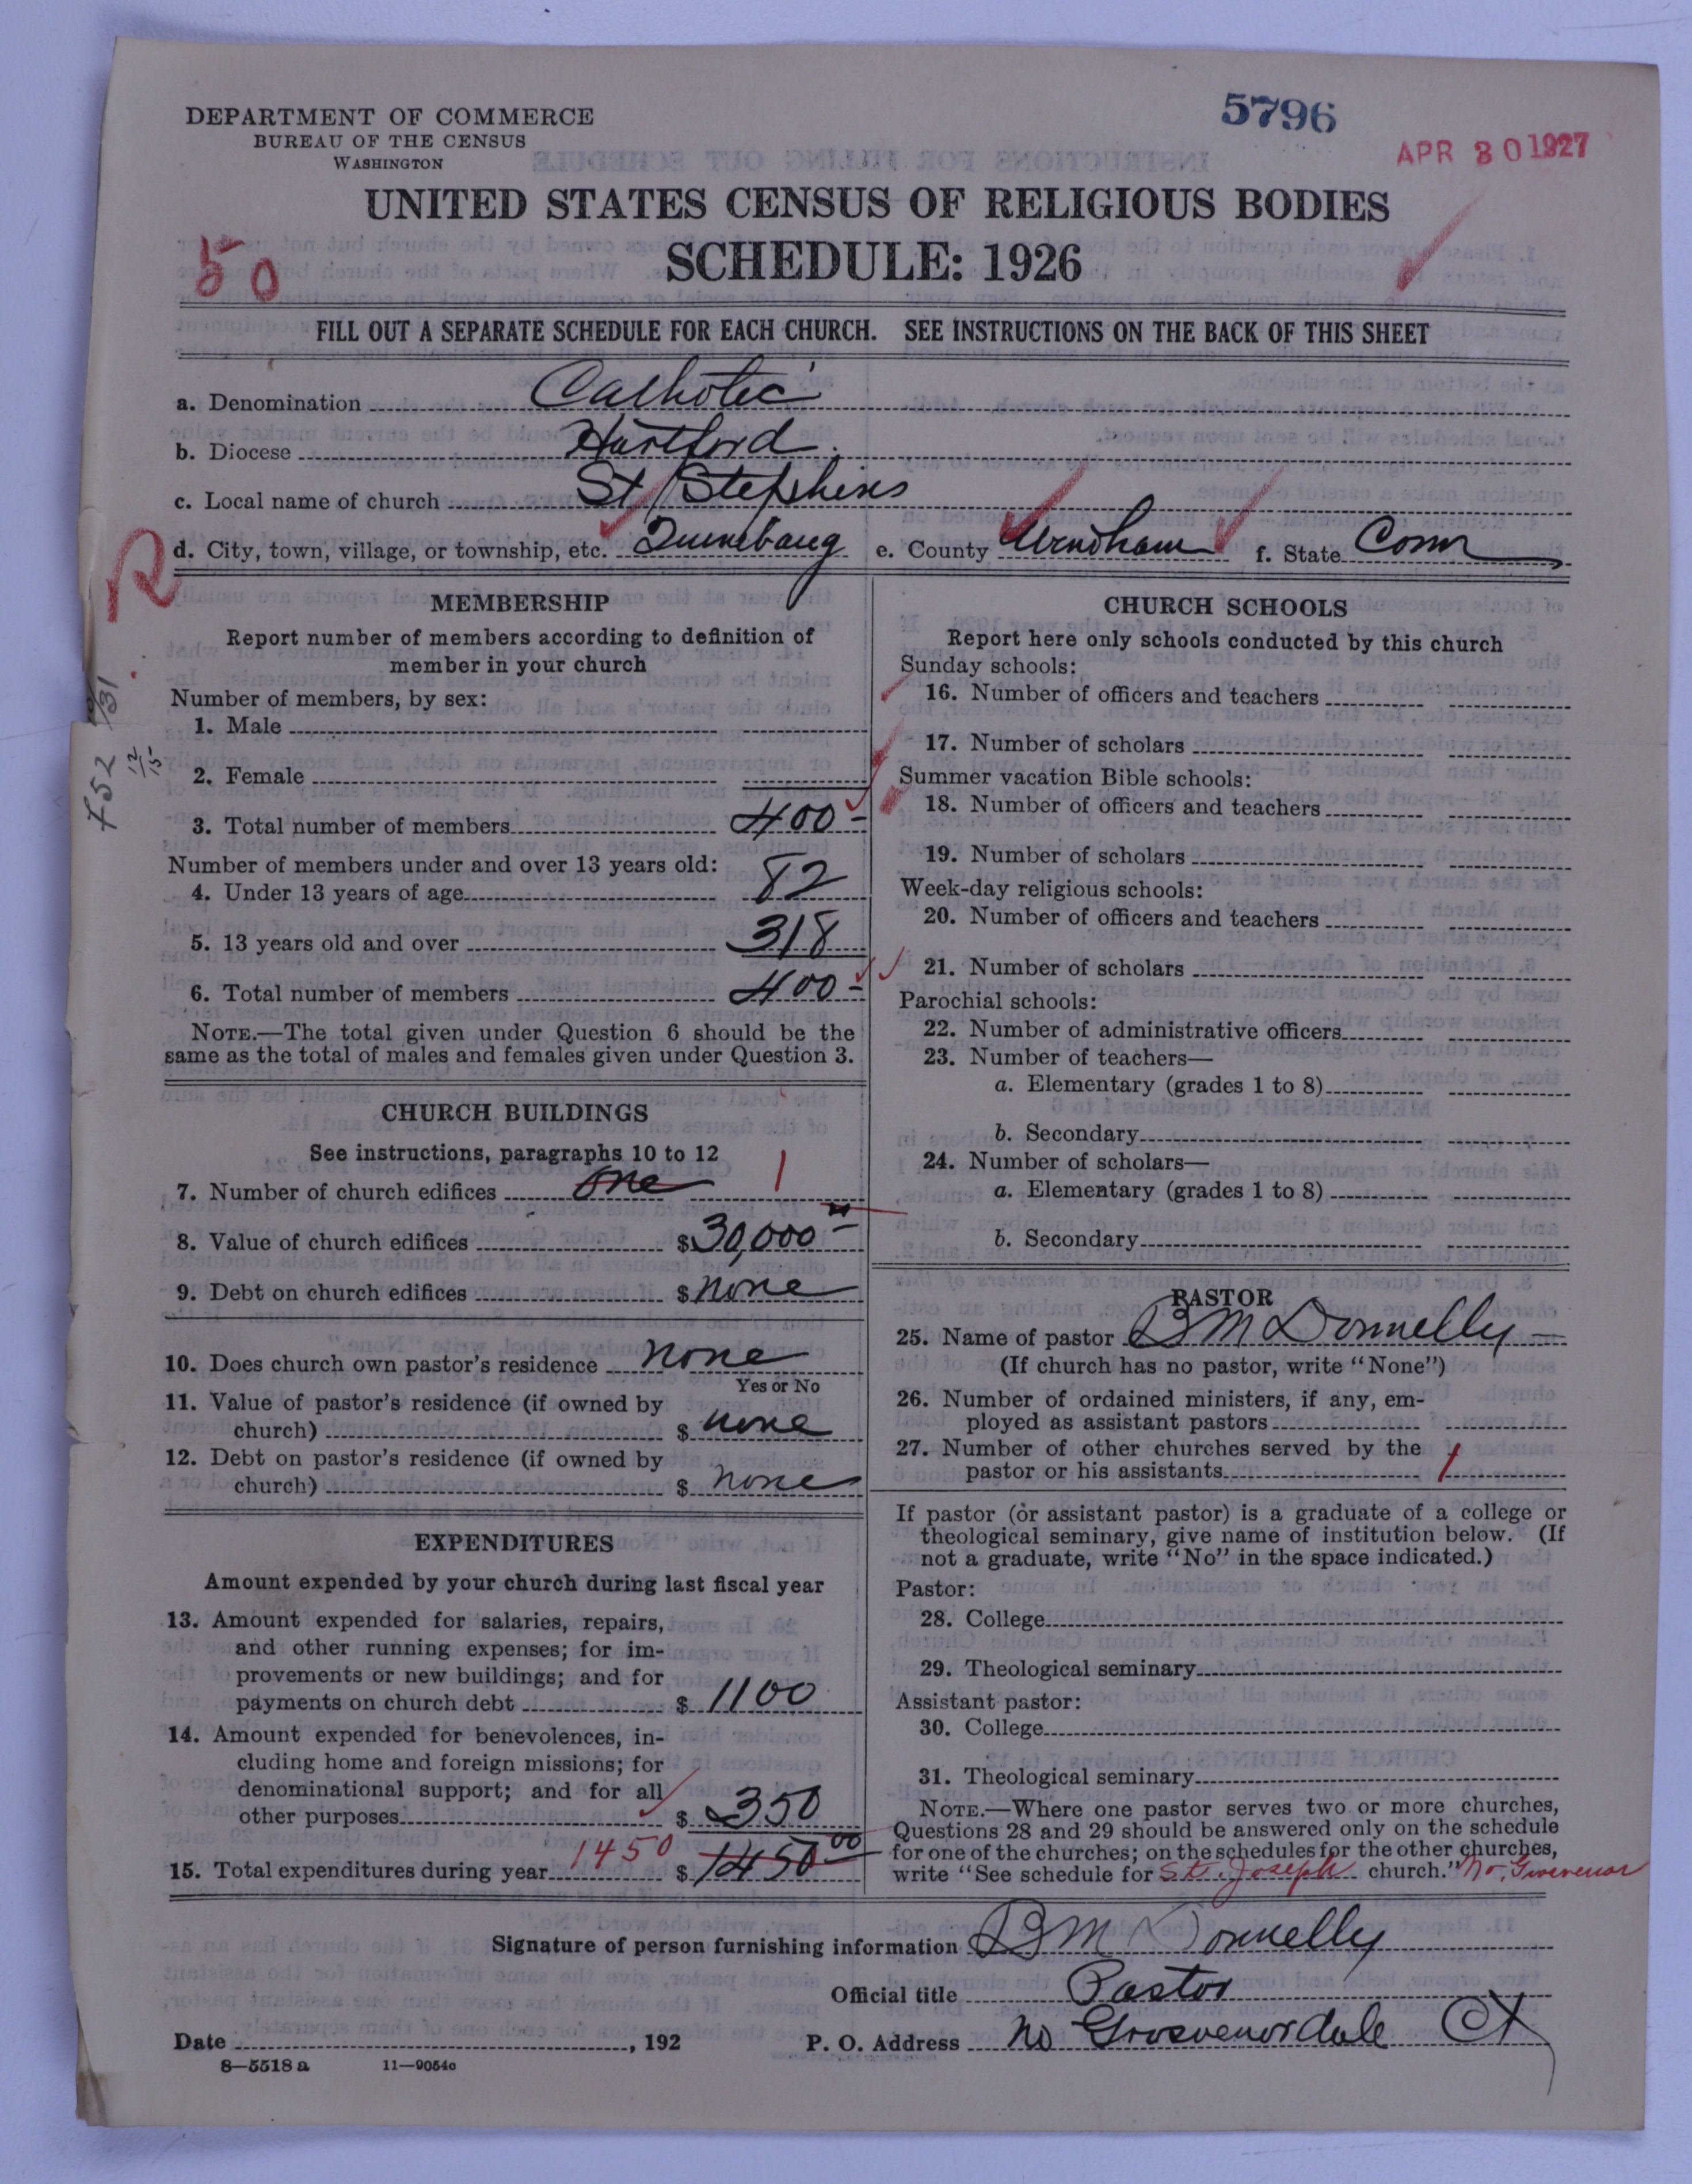 DEPARTMENT OF COMMERCE
BUREAU OF THE CENSUS
WASHINGTON
5796
APR 30 1927
UNITED STATES CENSUS OF RELIGIOUS BODIES
SCHEDULE: 1926
50
FILL OUT A SEPARATE SCHEDULE FOR EACH CHURCH. SEE INSTRUCTIONS ON THE BACK OF THIS SHEET
a. Denomination Catholic
b. Diocese Hartford
c. Local name of church St Stephens
d. City, town, village, or township, etc. Quinebaug e. County Windham f. State Conn
R
MEMBERSHIP
Report number of members according to definition of
member in your church
Number of members, by sex:
1. Male
2. Female
3. Total number of members 400
Number of members under and over 13 years old:
4. Under 13 years of age 82
5. 13 years old and over 318
6. Total number of members 400
NOTE.—The total given under Question 6 should be the
same as the total of males and females given under Question 3.
CHURCH BUILDINGS
See instructions, paragraphs 10 to 12
7. Number of church edifices one 1
8. Value of church edifices $30,000
9. Debt on church edifices $ none
10. Does church own pastor's residence none
Yes or No
11. Value of pastor's residence (if owned by
church) $ none
12. Debt on pastor's residence (if owned by
church) $ none
EXPENDITURES
Amount expended by your church during last fiscal year
13. Amount expended for salaries, repairs,
and other running expenses; for im-
provements or new buildings; and for
payments on church debt $ 1100
14. Amount expended for benevolences, in-
cluding home and foreign missions; for
denominational support; and for all
other purposes $ 350
15. Total expenditures during year 1450 $ 1450 00
CHURCH SCHOOLS
Report here only schools conducted by this church
Sunday schools:
16. Number of officers and teachers
17. Number of scholars
Summer vacation Bible schools:
18. Number of officers and teachers
19. Number of scholars
Week-day religious schools:
20. Number of officers and teachers
21. Number of scholars
Parochial schools:
22. Number of administrative officers
23. Number of teachers—
a. Elementary (grades 1 to 8)
b. Secondary
24. Number of scholars—
a. Elementary (grades 1 to 8)
b. Secondary
PASTOR
25. Name of pastor B M Donnelly
(If church has no pastor, write "None")
26. Number of ordained ministers, if any, em-
ployed as assistant pastors
27. Number of other churches served by the
pastor or his assistants 1
If pastor (or assistant pastor) is a graduate of a college or
theological seminary, give name of institution below. (If
not a graduate, write "No" in the space indicated.)
Pastor:
28. College
29. Theological seminary
Assistant pastor:
30. College
31. Theological seminary
NOTE.—Where one pastor serves two or more churches,
Questions 28 and 29 should be answered only on the schedule
for one of the churches; on the schedules for the other churches,
write "See schedule for St. Joseph church." No. Grosvenor
Signature of person furnishing information B M Donnelly
Official title Pastor
Date , 192 P. O. Address No Grosvenordale Ct
8—5518 a 11—9054c